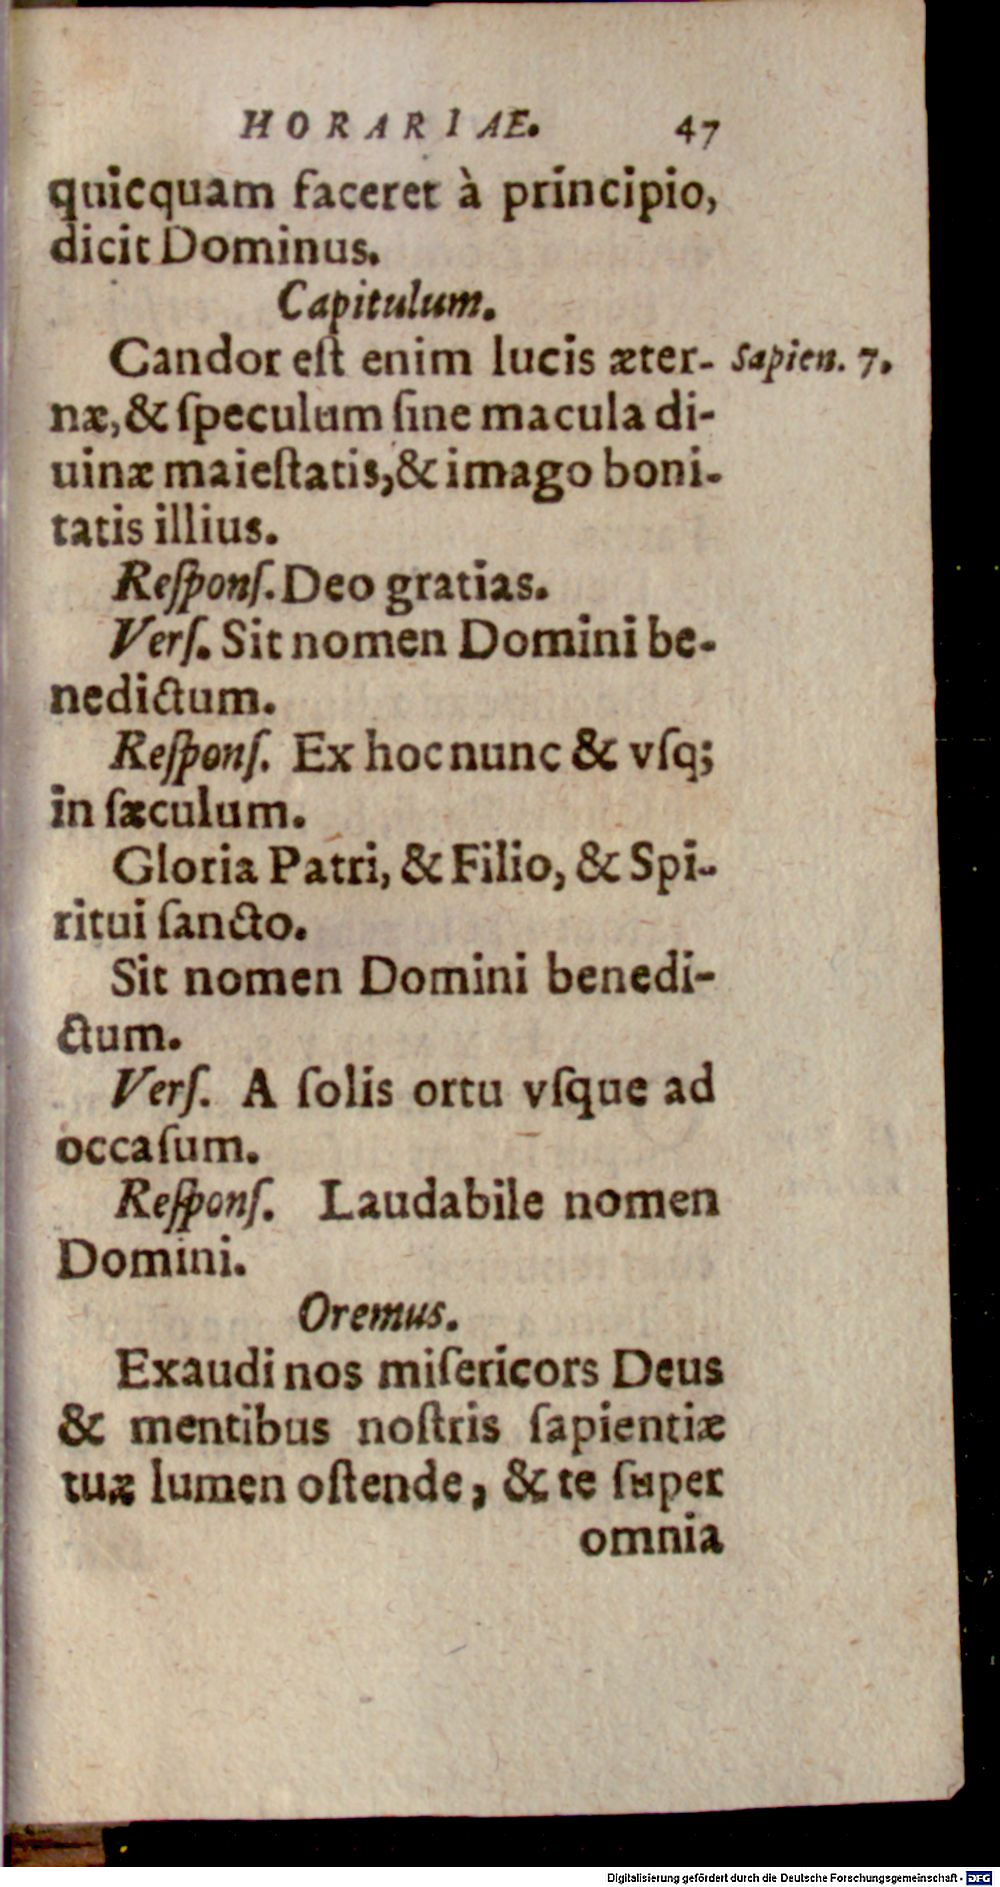 HORARIAE. 47
quicquam faceret à principio,
dicit Dominus.
Capitulum.
Candor eſt enim lucis æter- Sapien. 7.
næ, & ſpeculum ſine macula di-
uinæ maieſtatis, & imago boni-
tatis illius.
Reſponſ. Deo gratias.
Verſ. Sit nomen Domini be-
nedictum.
Reſponſ. Ex hoc nunc & vſq;
in ſæculum.
Gloria Patri, & Filio, & Spi-
ritui ſancto.
Sit nomen Domini benedi-
ctum.
Verſ. A ſolis ortu vſque ad
occaſum.
Reſponſ. Laudabile nomen
Domini.
Oremus.
Exaudi nos miſericors Deus
& mentibus noſtris ſapientiæ
tuæ lumen oſtende, & te ſuper
omnia
Digitalisierung gefördert durch die Deutsche Forschungsgemeinschaft - DFG